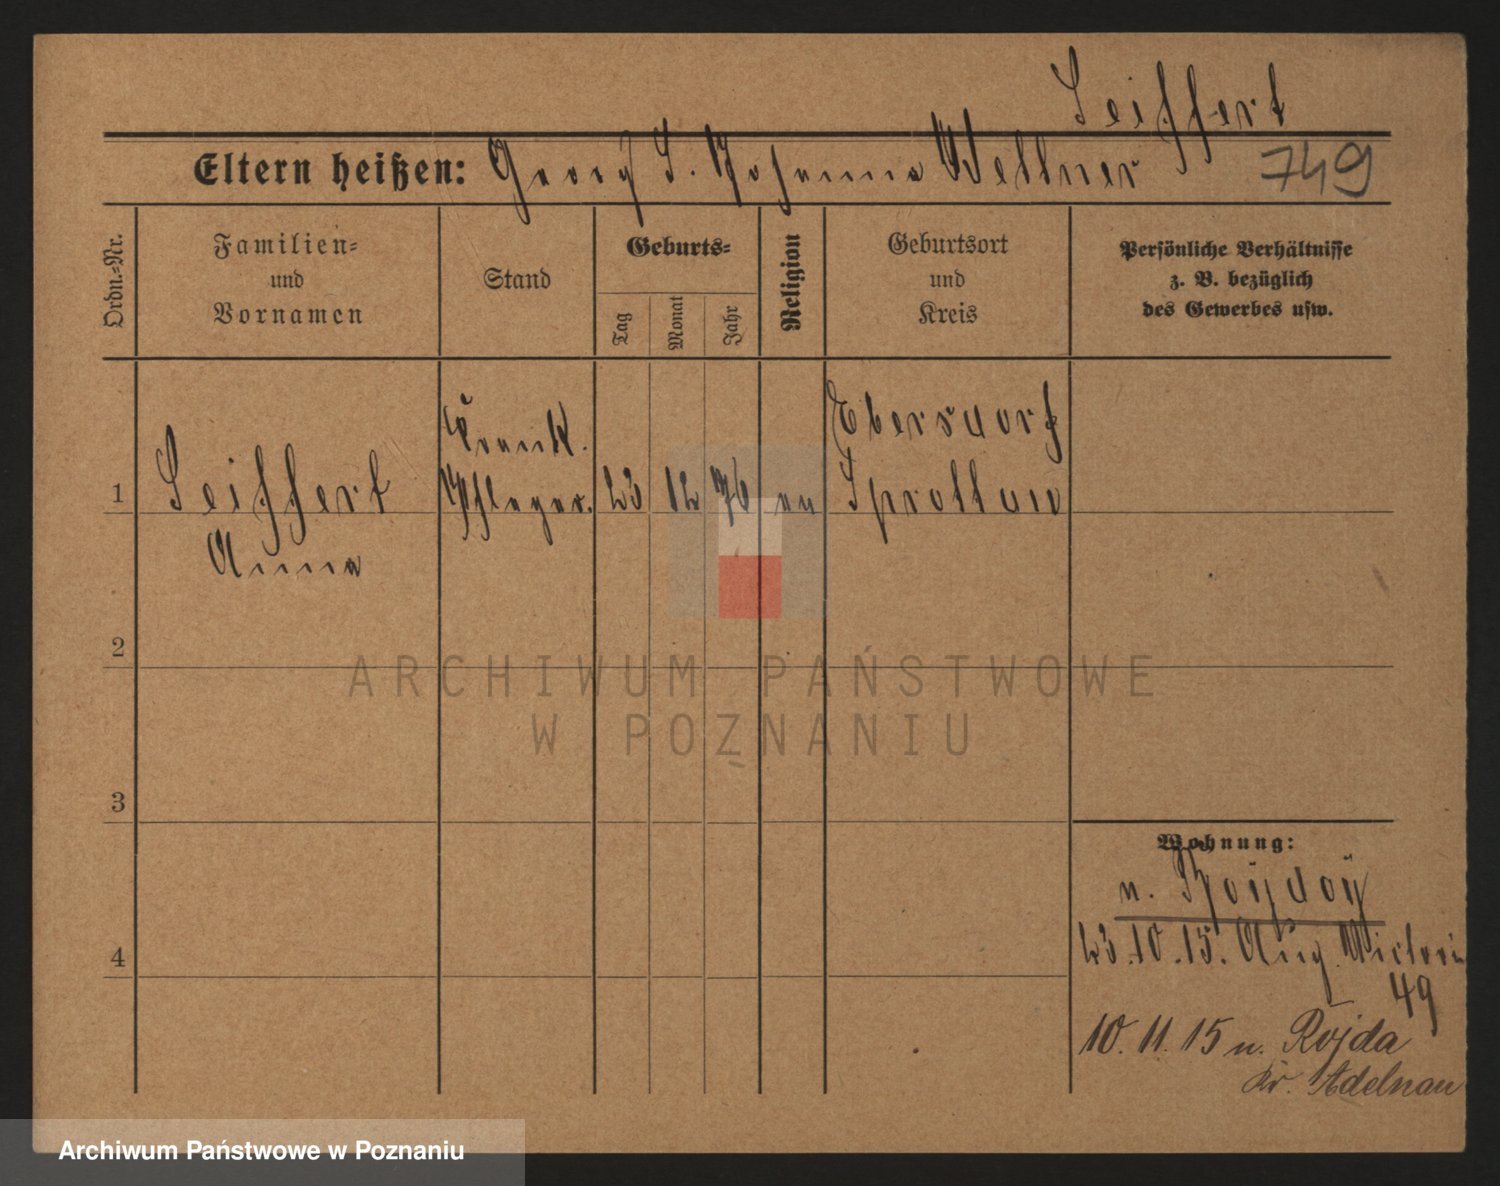 Seiffert
Eltern heißen: Georg S. Johanna Wellner 749
Ordn.-Nr.
Familien-
und
Vornamen
Stand
Geburts-
Tag
Monat
Jahr
Religion
Geburtsort
und
Kreis
Persönliche Verhältnisse
z. B. bezüglich
des Gewerbes usw.
1
Seiffert
Anna
Krank.
Pfleger.
23 12 76
Ebersdorf
Sprottau
2
ARCHIWUM PAŃSTWOWE
W POZNANIU
3
4
Wohnung:
n.
23.10.15. Aug. Victori
49
10. 11. 15 n. Rojda
Kr. Adelnau
Archiwum Państwowe w Poznaniu